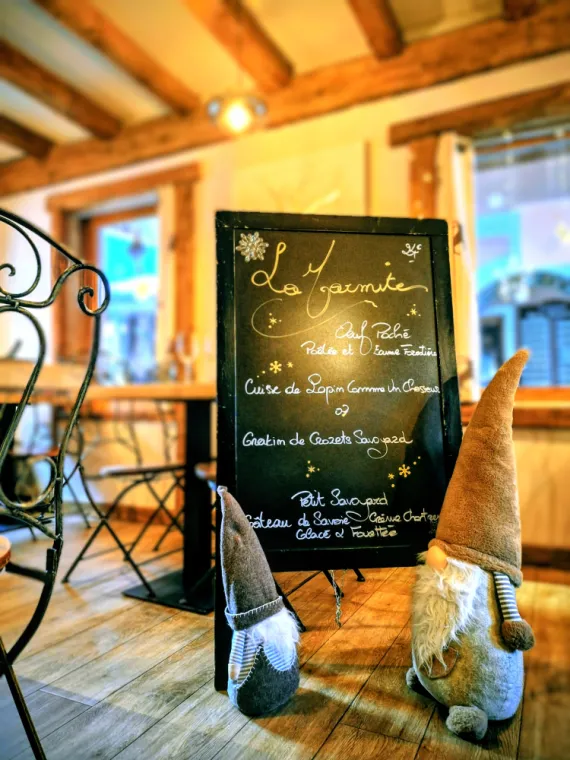 La Marmite
Œuf Poché
Poêlée et Sauce Forestière
Cuisse de Lapin Comme un Chasseur
Gratin de Crozets Savoyard
Petit Savoyard
Gâteau de Savoie Crème Chartreuse
Glace